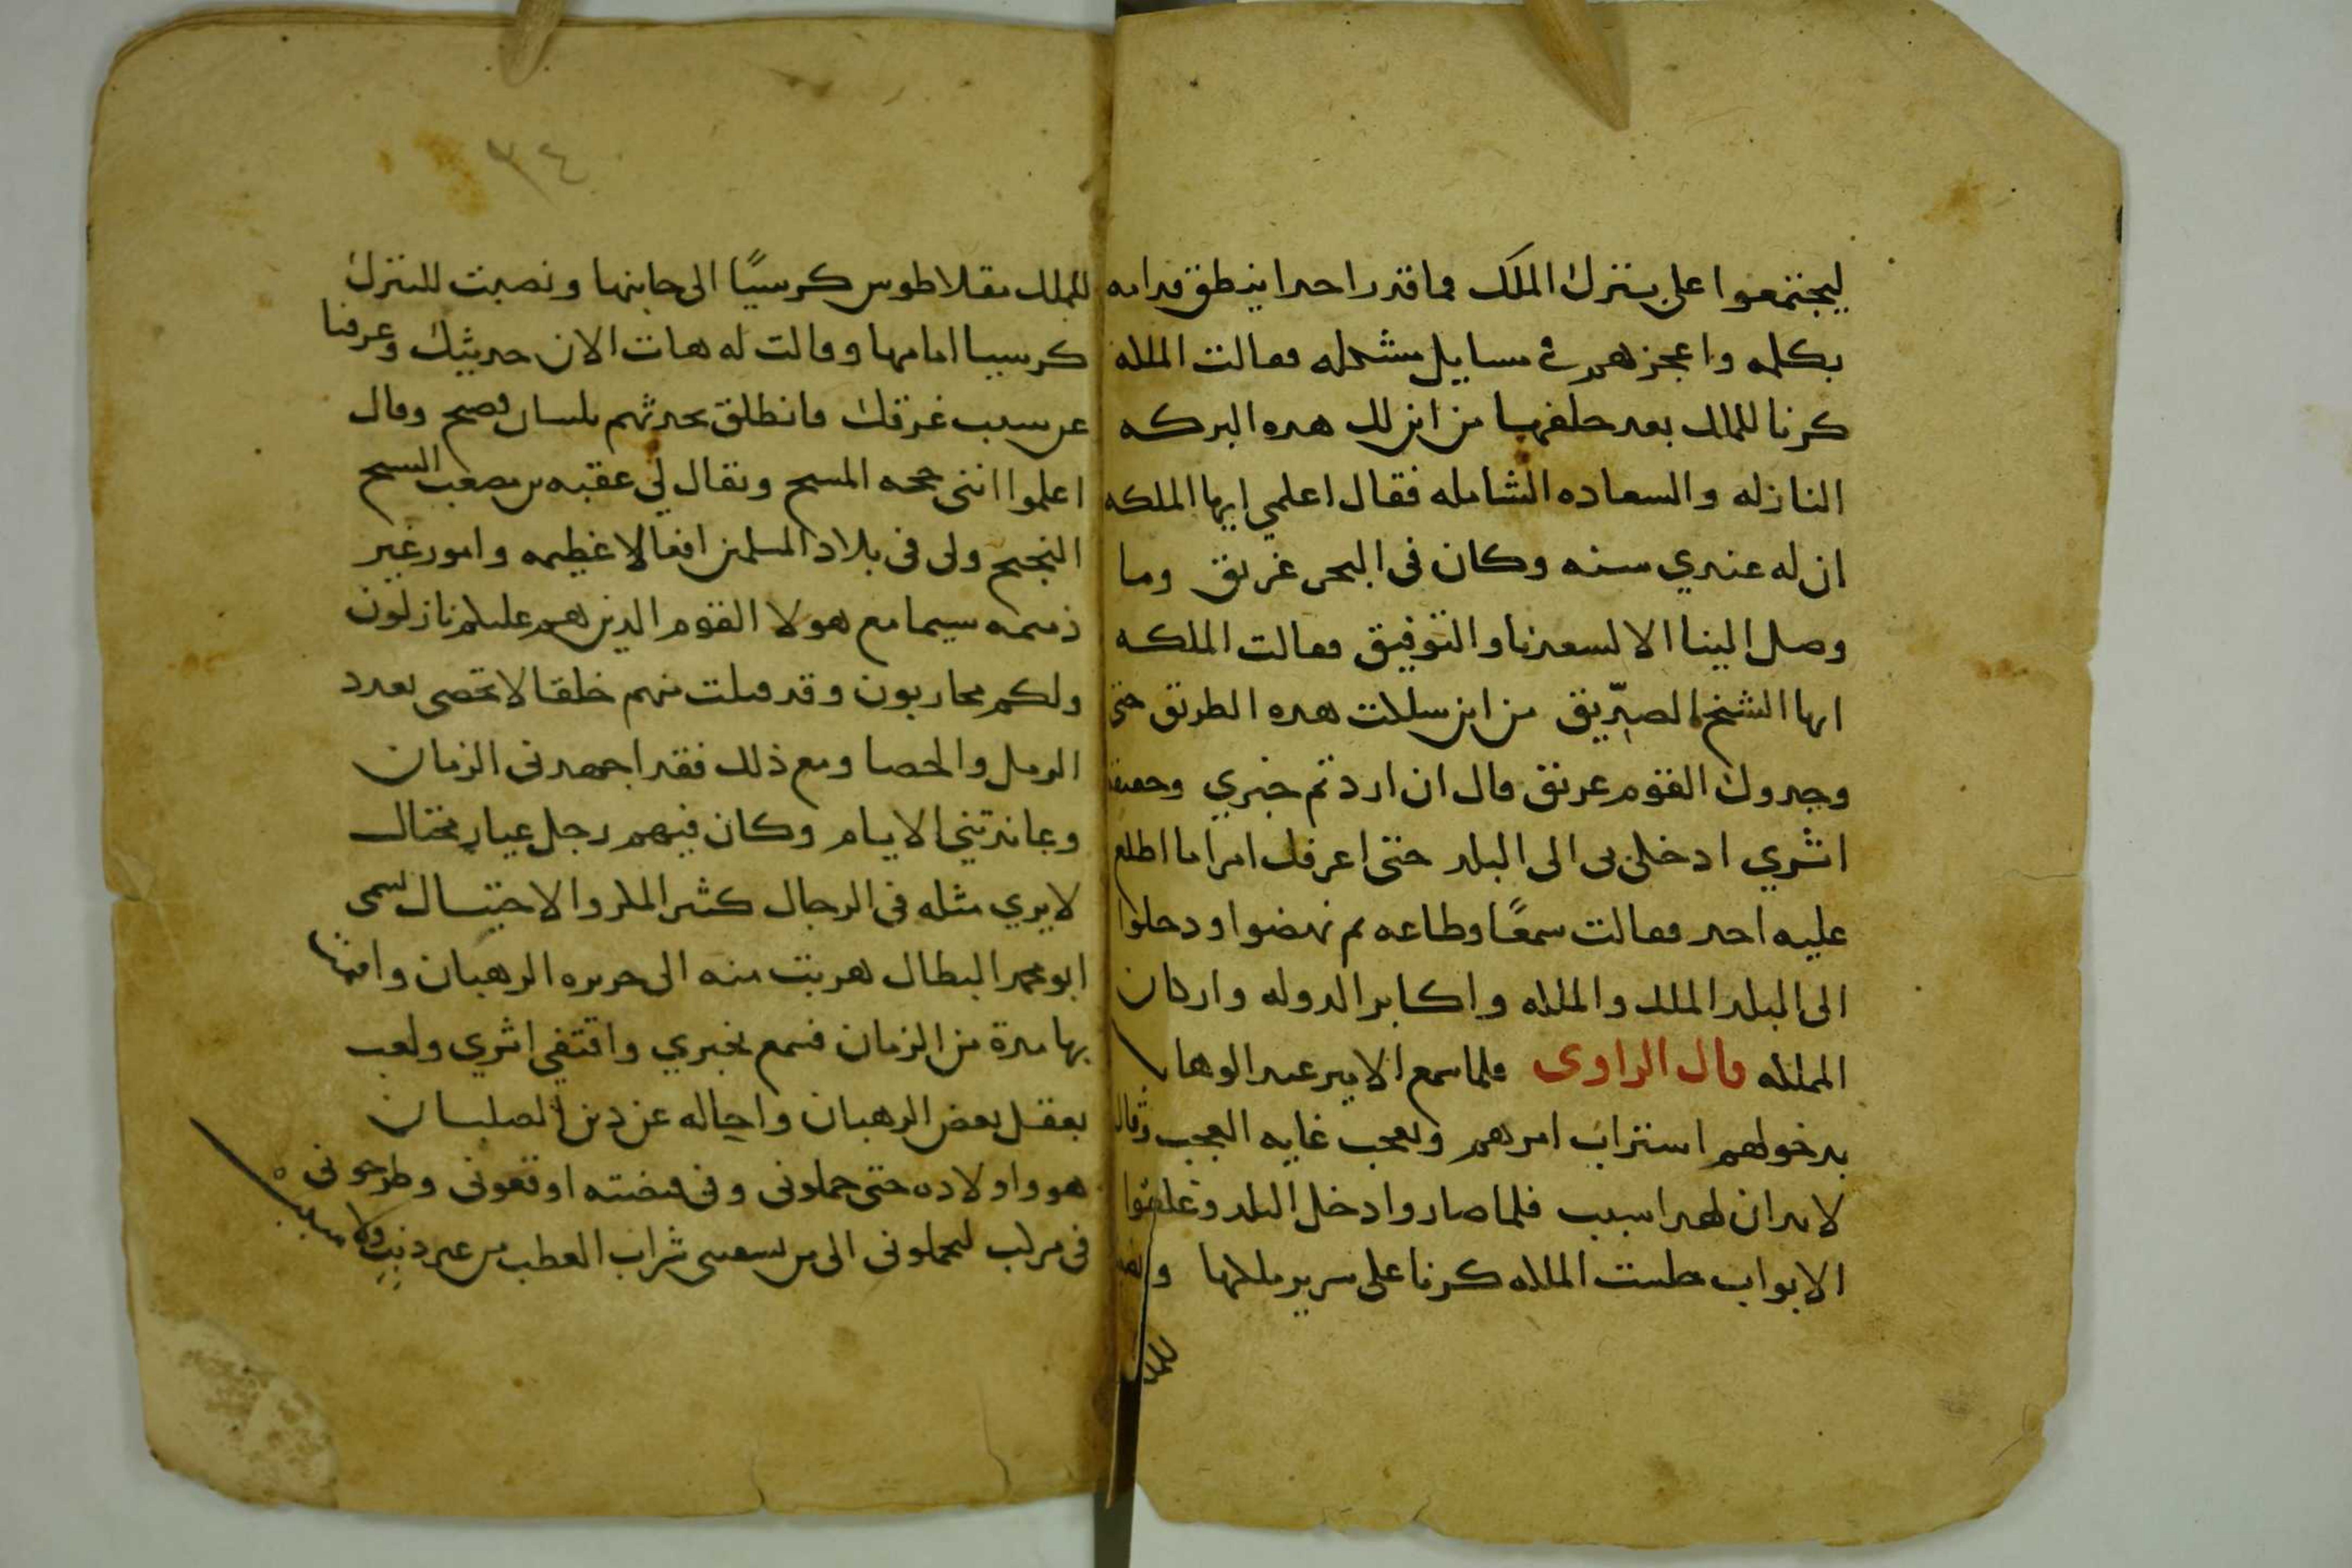 ليجتمعوا على بتترك الملك فما قدر احدا ينطق قدامه
بكلمه واعجزهم في مسايل مشكله فقالت الملكه
كرنا للملك بعد حلفها من اين لك هده البركه
النازله والسعاده الشامله فقال اعلمي ايها الملكه
ان له عندي سنه وكان في البحر غريق وما
وصل الينا الا لسعدنا والتوفيق فقالت الملكه
ايها الشيخ الصديق من اين سلكت هده الطريق حتى
وجدوك القوم غريق قال ان اردتم خبري وحقيقة
اثري ادخلي بي الى البلد حتى اعرفك امرا ما اطلع
عليه احد فقالت سمعًا وطاعه ثم نهضوا ودخلوا
الى البلد الملك والملكه واكابر الدوله واركان
المملكه قال الراوى فلما سمع الامير عبد الوهاب
بدخولهم استراب امرهم وتعجب غايه العجب وقال
لابد ان لهدا سبب فلما صاروا داخل البلد وغلقوا
الابواب جلست الملكه كرنا على سرير ملكها
للملك
٣٤
للملك مقلاطوس كرسيًا الى جانبها ونصبت للبترك
كرسيا امامها وقالت له هات الان حديثك وعرفنا
عن سبب غرقك فانطلق يحدثهم بلسان فصيح وقال
اعلموا انني حجه المسيح ويقال لي عقبه بن مصعب السيح
النجيح ولى فى بلاد المسلمين افعالا عظيمه وامور غير
ذميمه سيما مع هولا القوم الدين هم عليكم نازلون
ولكم محاربون وقد قتلت منهم خلقا لا تحصى بعدد
الرمل والحصا ومع ذلك فقد اجهدنى الزمان
وعاندتني الايام وكان فيهم رجل عيار محتال
لا يري مثله فى الرجال كثير المكر والاحتيال يسمى
ابو محمد البطال هربت منه الى جزيره الرهبان واقمت
بها مدة من الزمان فسمع بخبري واقتفي اثري ولعب
بعقل بعض الرهبان واحاله عن دين الصلبان
هو واولاده حتى حملونى وفى قبضته اوقعونى وطرحونى
فى مركب ليحملونى الى من يسقينى شراب العطب من غير ذنب ولا سبب